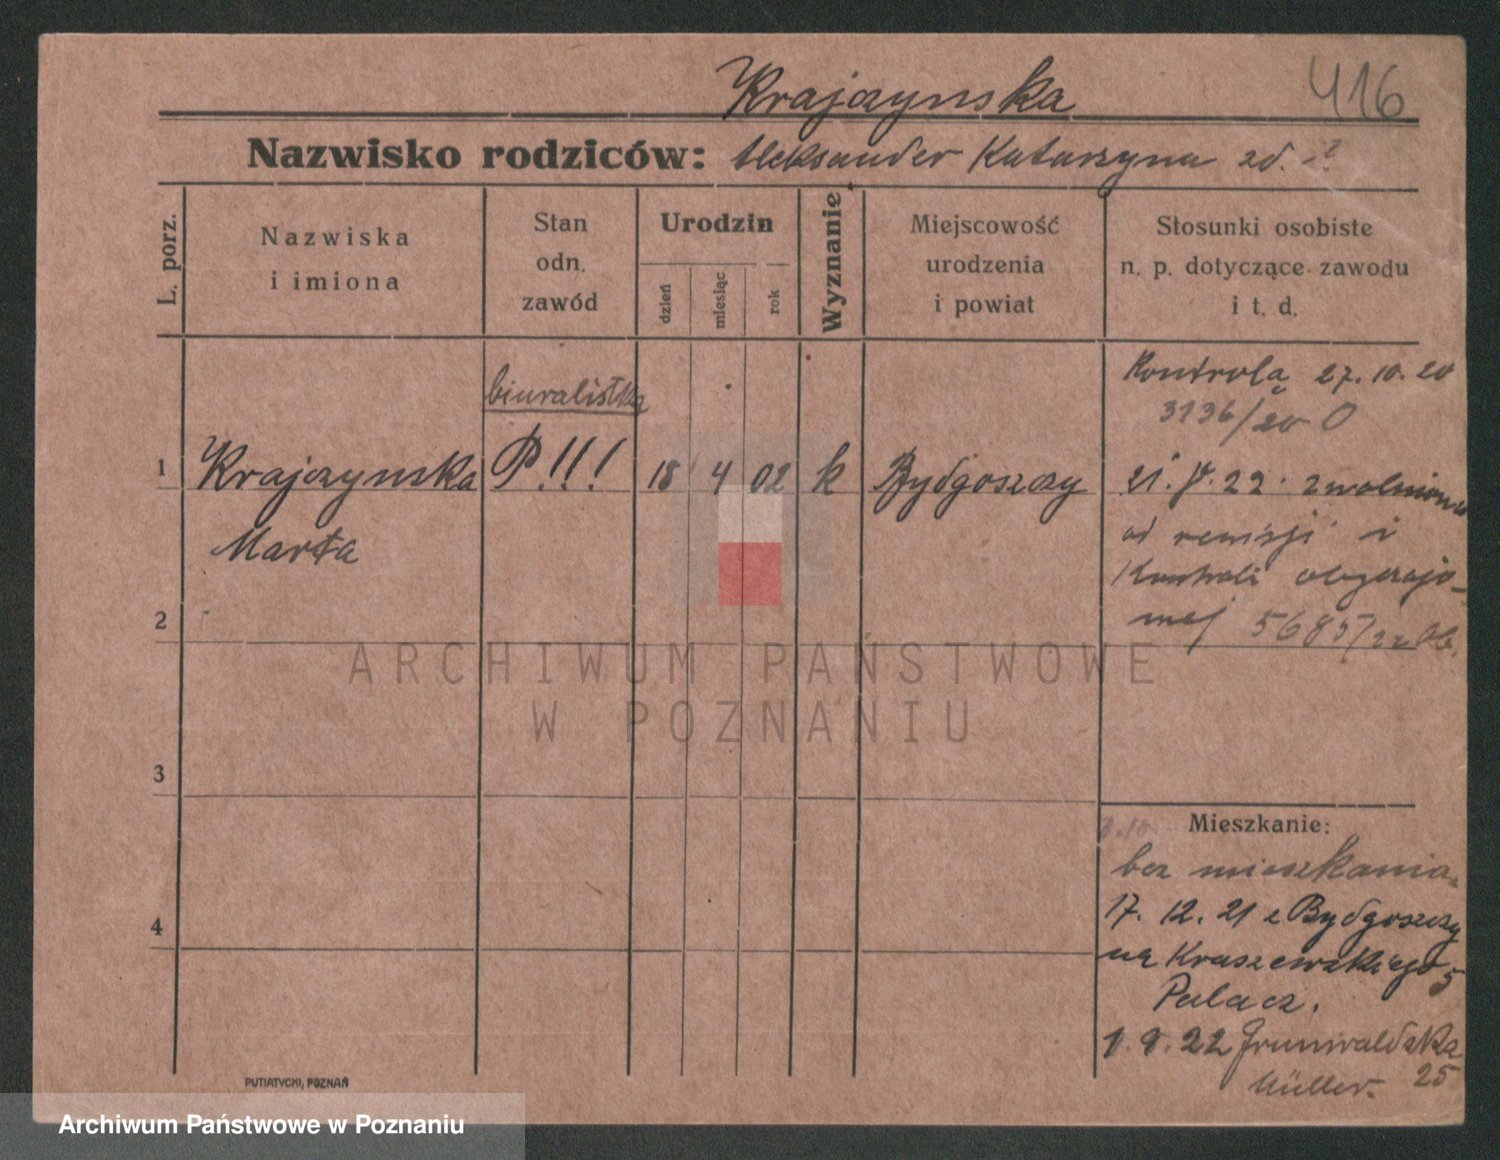 Krajczynska 416
Nazwisko rodziców: Aleksander Katarzyna zd. -?
L. porz.
Nazwiska
i imiona
Stan
odn.
zawód
Urodzin
dzień
miesiąc
rok
Wyznanie
Miejscowość
urodzenia
i powiat
Stosunki osobiste
n. p. dotyczące zawodu
i t. d.
biuralistka
1 Krajczynska P!!! 18 4 02 k Bydgoszczy
Marta
Kontrolą 27.10.20
3136/20 O
21. 22. zwolniona
od remisji i
Kontroli obyczajo-
wej 5685/22 Ob.
2
3
4
Mieszkanie:
bez mieszkania.
17. 12. 21 z Bydgoszczy
na Kraszewskiego 5
Palacz.
1. 9. 22 Grunwaldzka
25
Müller.
PUTIATYCKI, POZNAŃ
ARCHIWUM PAŃSTWOWE
W POZNANIU
Archiwum Państwowe w Poznaniu